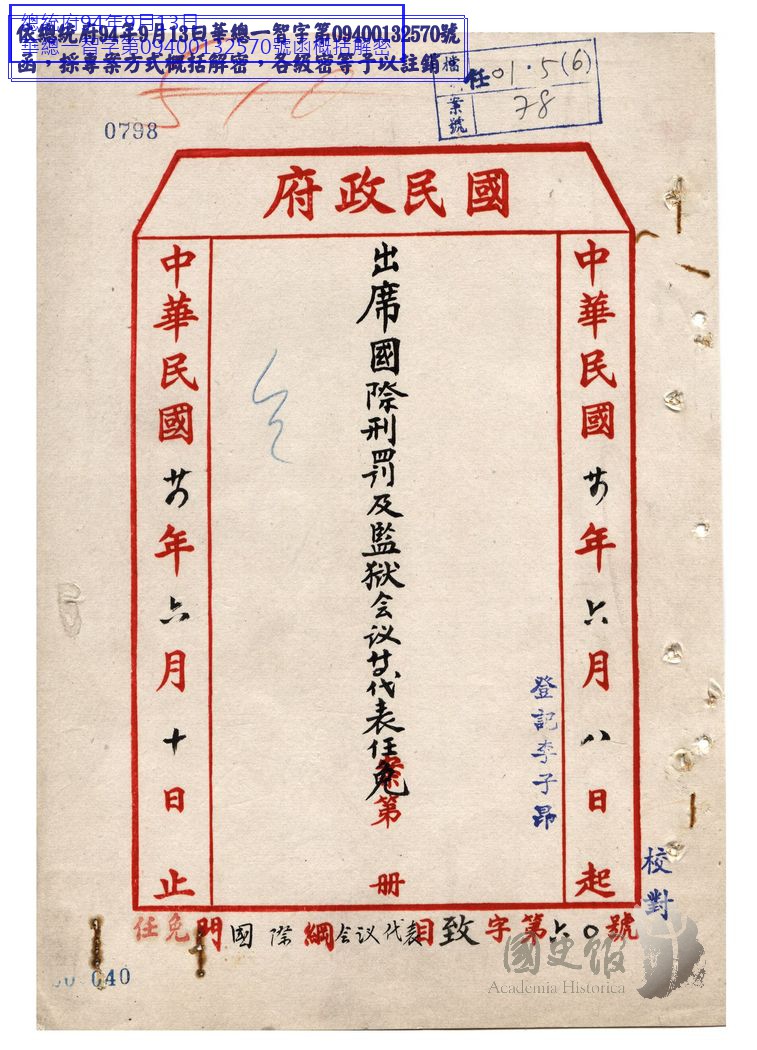 總統府94年9月13日
華總一智字第09400132570號函概括解密
依總統府94年9月13日華總一智字第09400132570號
函，採專案方式概括解密，各級密等予以註銷
檔案號
任01·5(6)
78
570
0798
國民政府
中華民國廿四年六月八日起
出席國際刑罰及監獄会议等代表任免
案第 册
登記李子昂
中華民國廿四年六月十日止
校對
任免門國際綱会议代表目致字第六〇號
國史館
Academia Historica
040